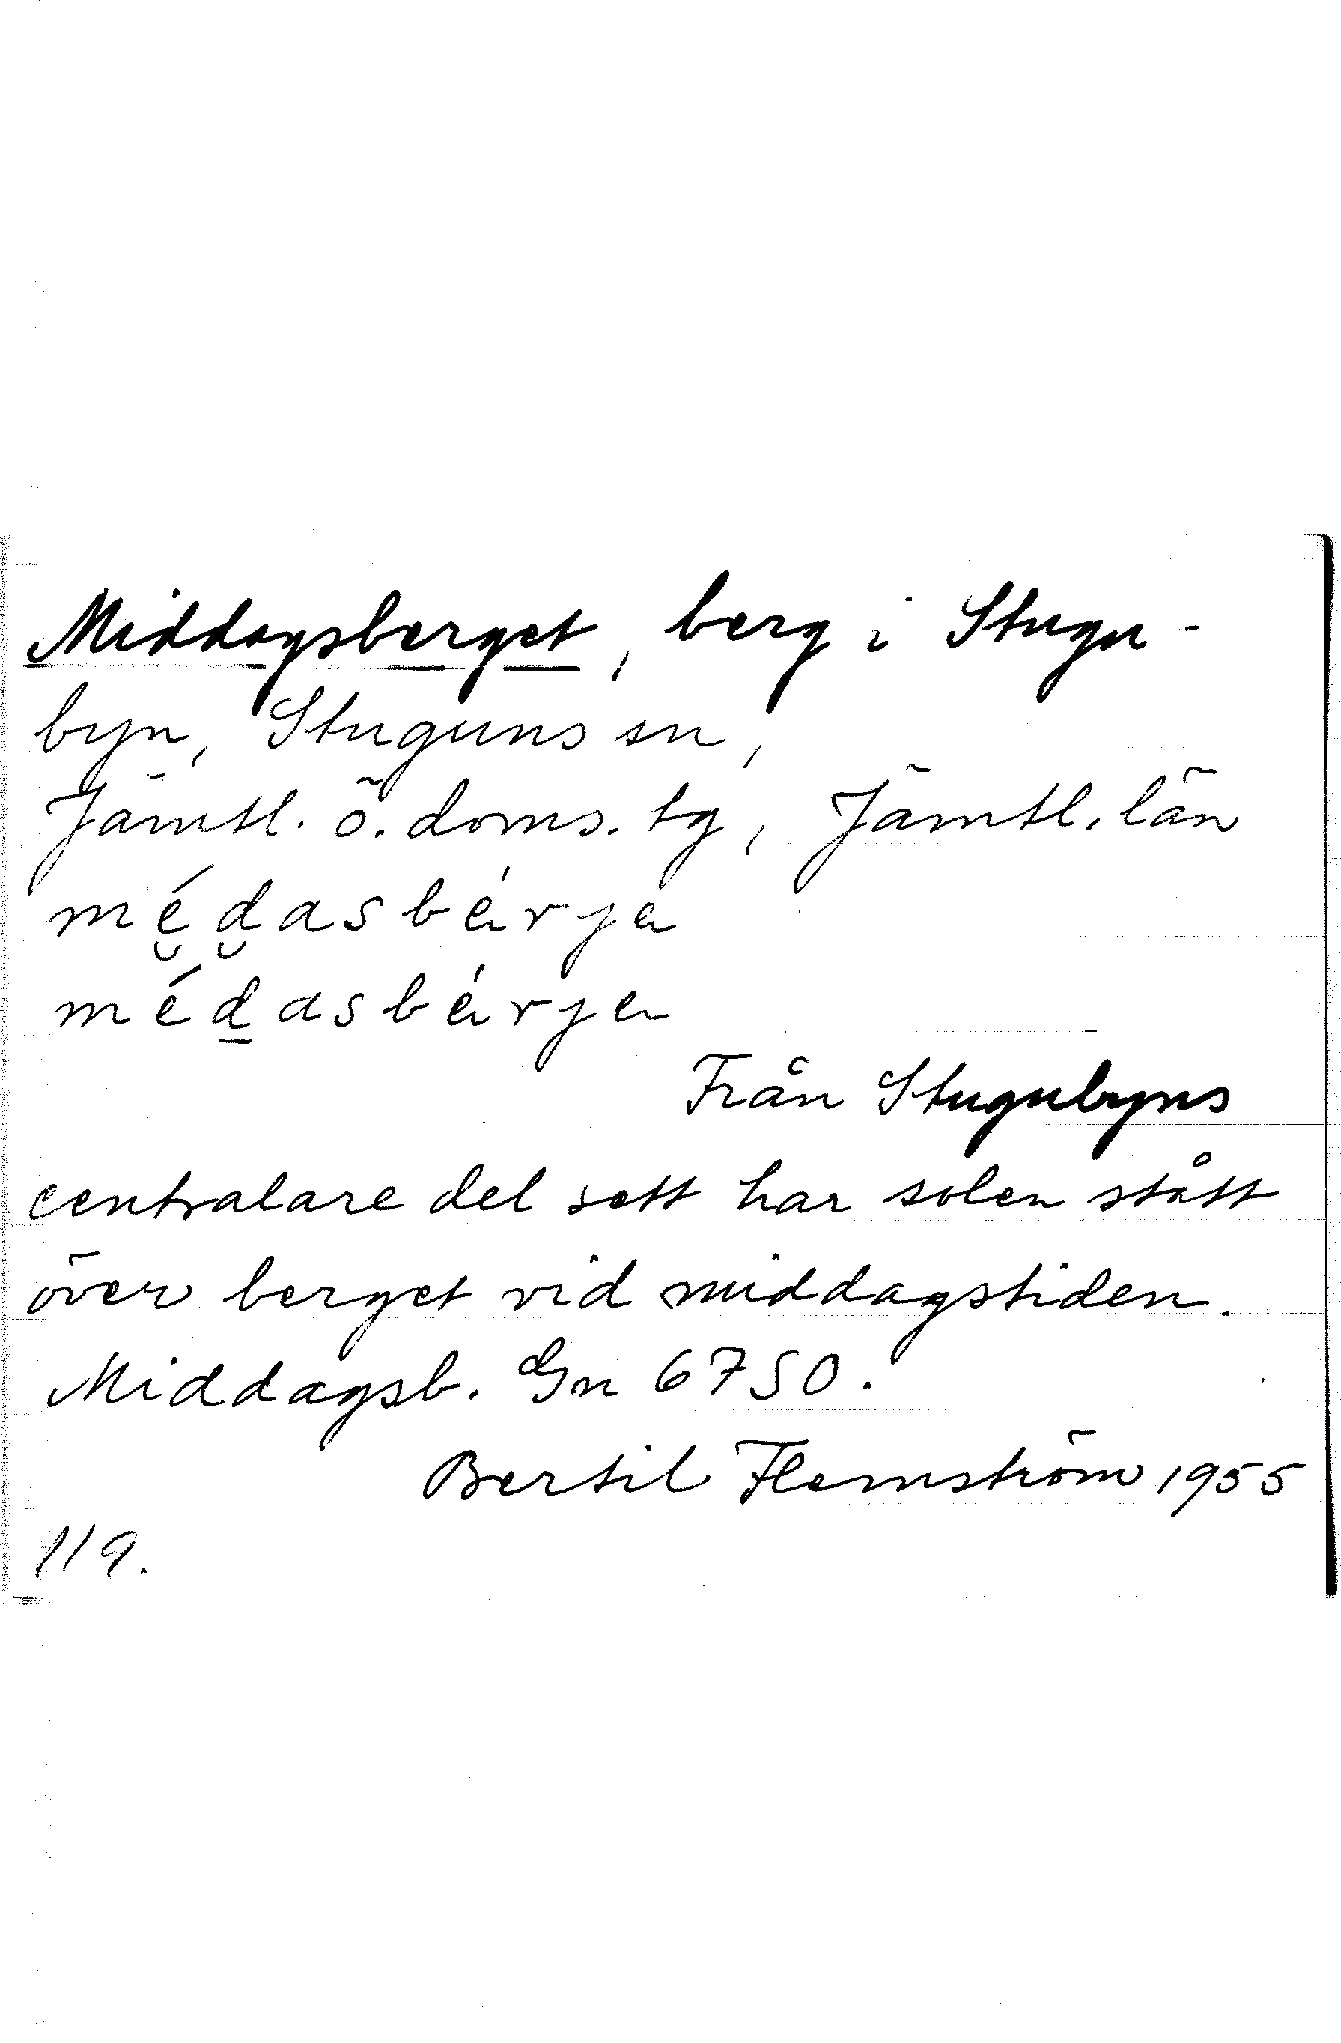 Middagsberget, berg i Stugu-
byn, Stuguns sn,
Jämtl. ö. doms. tg, Jämtl. län
médasbérje
médasbérje
Från Stugubyns
centralare del sett har solen stått
över berget vid middagstiden.
Middagsb. Gn 6750.
Bertil Flemström 1955
119.